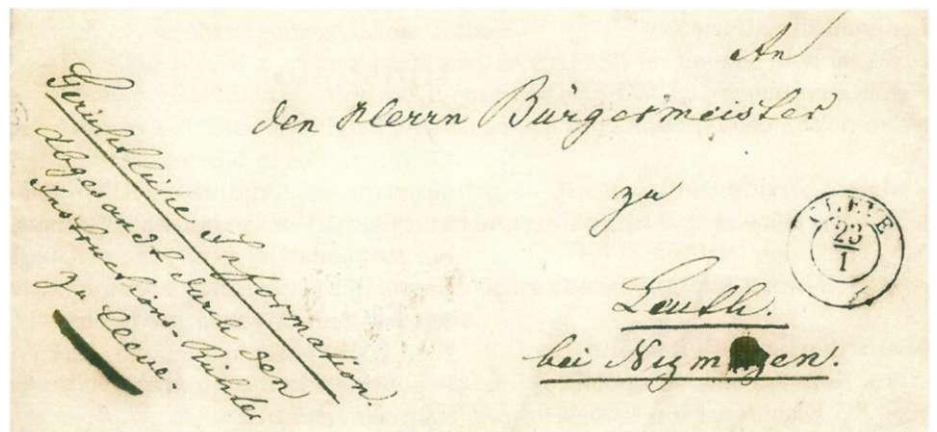 An
den Herrn Bürgermeister
zu
Leuth.
bei Nymwegen.
Gerichtliche Information
abgesandt durch den
Instructions-Richter
zu Cleve.
CLEVE
23
I